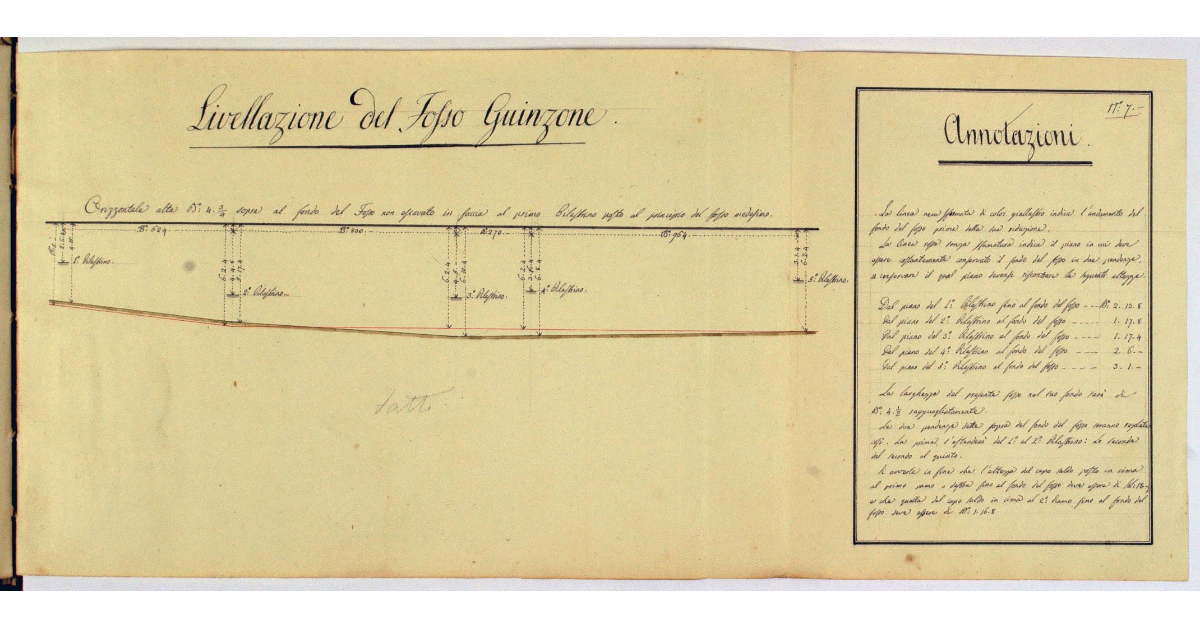 Livellazione del Fosso Guinzone.
Orizzontale alta Br. 4. 3/4 sopra al fondo del Fosso non escavato in faccia al primo Pilastrino posto al principio del fosso medesimo.
Br. 624
Br. 800
Br. 270
Br. 964
1.° Pilastrino.
2.° Pilastrino.
3.° Pilastrino.
4.° Pilastrino.
5.° Pilastrino.
fatti
N.° 7.
Annotazioni.
La linea nera sfumata di color giallastro indica l'andamento del
fondo del fosso prima della sua riduzione.
La linea rossa senza sfumatura indica il piano in cui deve
essere costantemente conservato il fondo del fosso in due pendenze,
a conservare il qual piano devonsi riscontrare le seguenti altezze.
Dal piano del 1.° Pilastrino fino al fondo del fosso --- Br. 2. 12. 8
Dal piano del 2.° Pilastrino al fondo del fosso ----- 1. 17. 8
Dal piano del 3.° Pilastrino al fondo del fosso ---- 1. 17. 4
Dal piano del 4.° Pilastrino al fondo del fosso ---- 2. 6. -
Dal piano del 5.° Pilastrino al fondo del fosso ---- 3. 1. -
La larghezza del presente fosso nel suo fondo sarà di
Br. 4. 1/2 ragguagliatamente.
Le due pendenze dette sopra del fondo del fosso saranno regolate
così. La prima s'estenderà dal 1.° al 2.° Pilastrino: La seconda
dal secondo al quinto.
Si avverte in fine che l'altezza del capo saldo posto in cima
al primo ramo a destra fino al fondo del fosso deve essere di
e che quella del capo saldo in cima al 2.° Ramo fino al fondo del
fosso deve essere di Br. 1. 16. 8